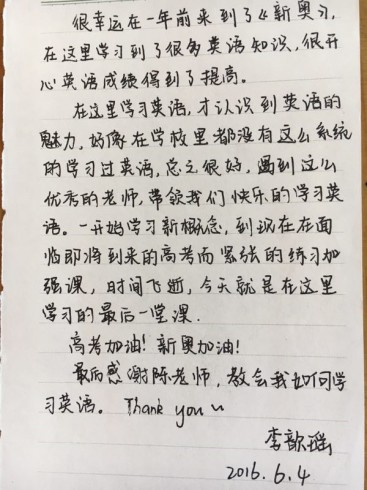 很幸运在一年前来到了《新奥习,
在这里学习到了很多英语知识,很开
心英语成绩得到了提高。
在这里学习英语,才认识到英语的
魅力,好像在学校里都没有这么系统
的学习过英语,总之很好,遇到这么
优秀的老师,带领我们快乐的学习英
语。一开始学习新概念,到现在在面
临即将到来的高考而紧张的练习加
强课,时间飞逝,今天就是在这里
学习的最后一堂课.
高考加油!新奥加油!
最后感谢陈老师,教会我如何学
习英语。Thank you~
李歆瑶
2016.6.4